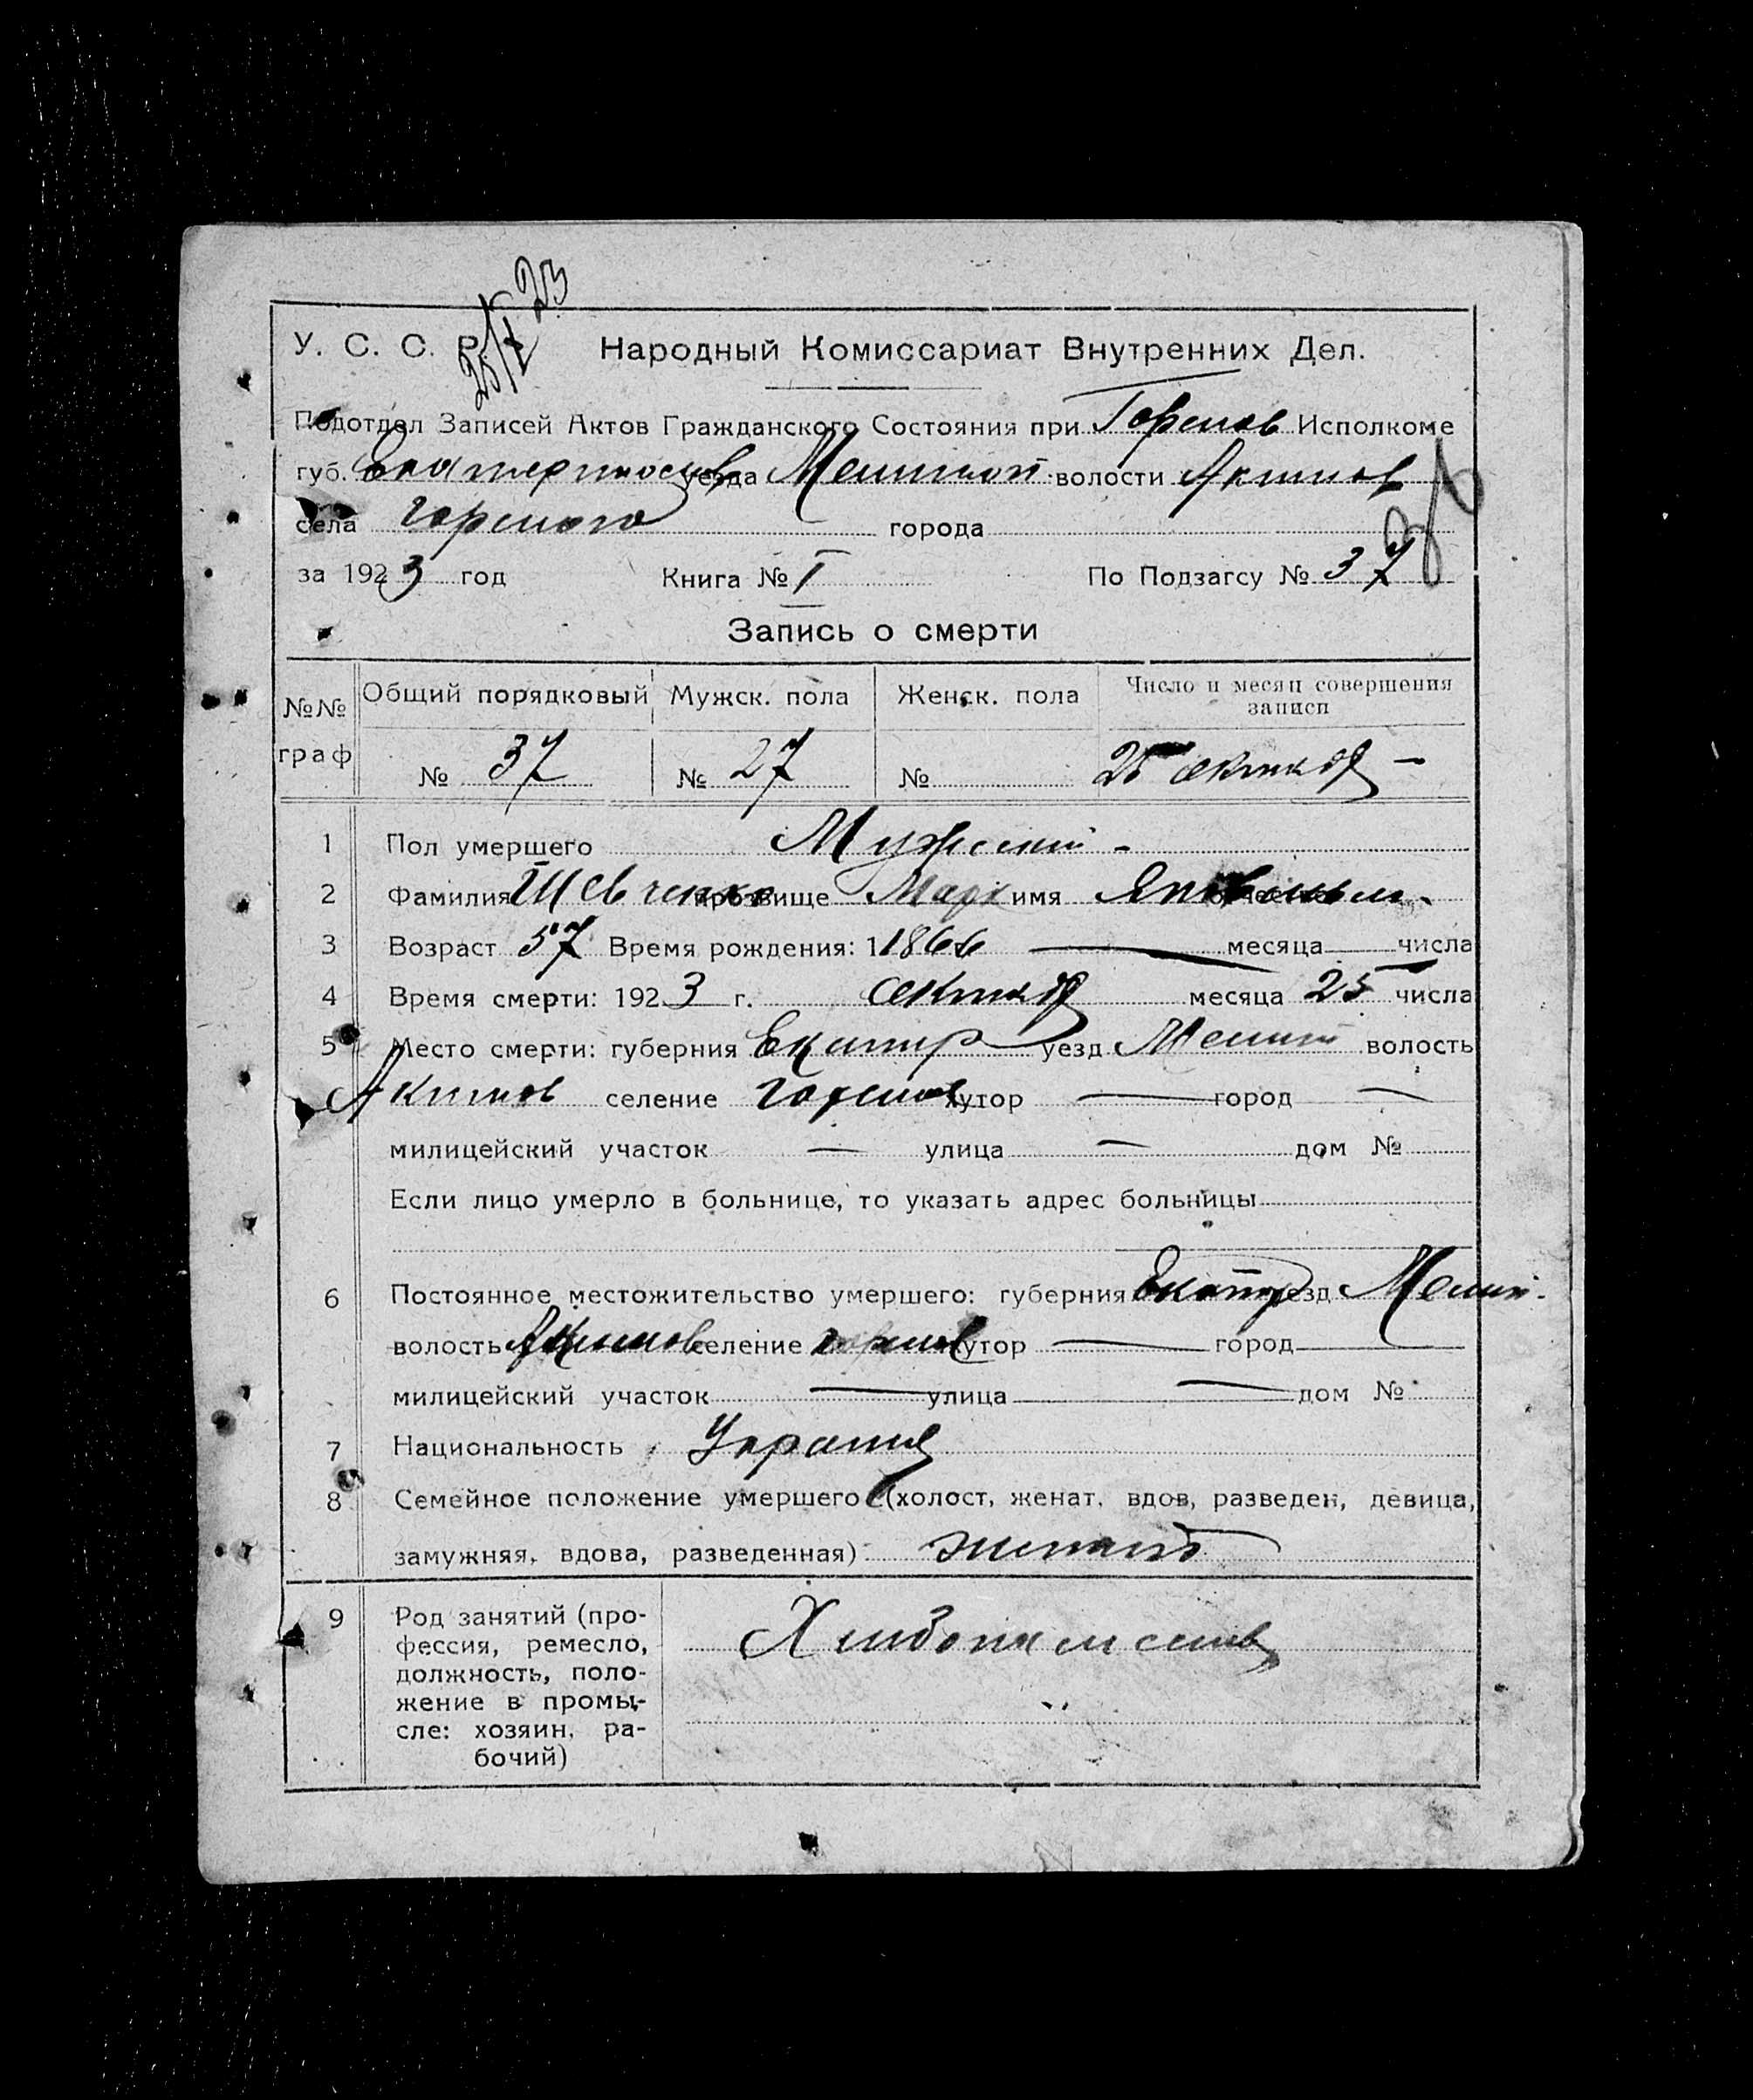 25/X 23
У. С. С. Р. Народный Комиссариат Внутренних Дел.
Подотдел Записей Актов Гражданского Состояния при Исполкоме
губ. Екатеринослав уезда волости Акимов
села города
за 1923 год Книга № I По Подзагсу № 37
Запись о смерти
№№ граф Общий порядковый Мужск. пола Женск. пола Число и месяц совершения записи
№ 37 № 27 № 25 октября -
1 Пол умершего Мужской -
2 Фамилия Шевченко прозвище Марк имя отчество
3 Возраст 57 Время рождения: 1 1866 — месяца — числа
4 Время смерти: 1923 г. октября месяца 25 числа
5 Место смерти: губерния Екатер уезд Мелит волость
Акимов селение хутор — город —
милицейский участок — улица — дом №
Если лицо умерло в больнице, то указать адрес больницы
6 Постоянное местожительство умершего: губерния Екатер уезд Мелит.
волость Акимов селение хутор — город —
милицейский участок — улица — дом №
7 Национальность
8 Семейное положение умершего (холост, женат, вдов, разведен, девица,
замужняя, вдова, разведенная)
9 Род занятий (про-
фессия, ремесло,
должность, поло-
жение в промы-
сле: хозяин, ра-
бочий)